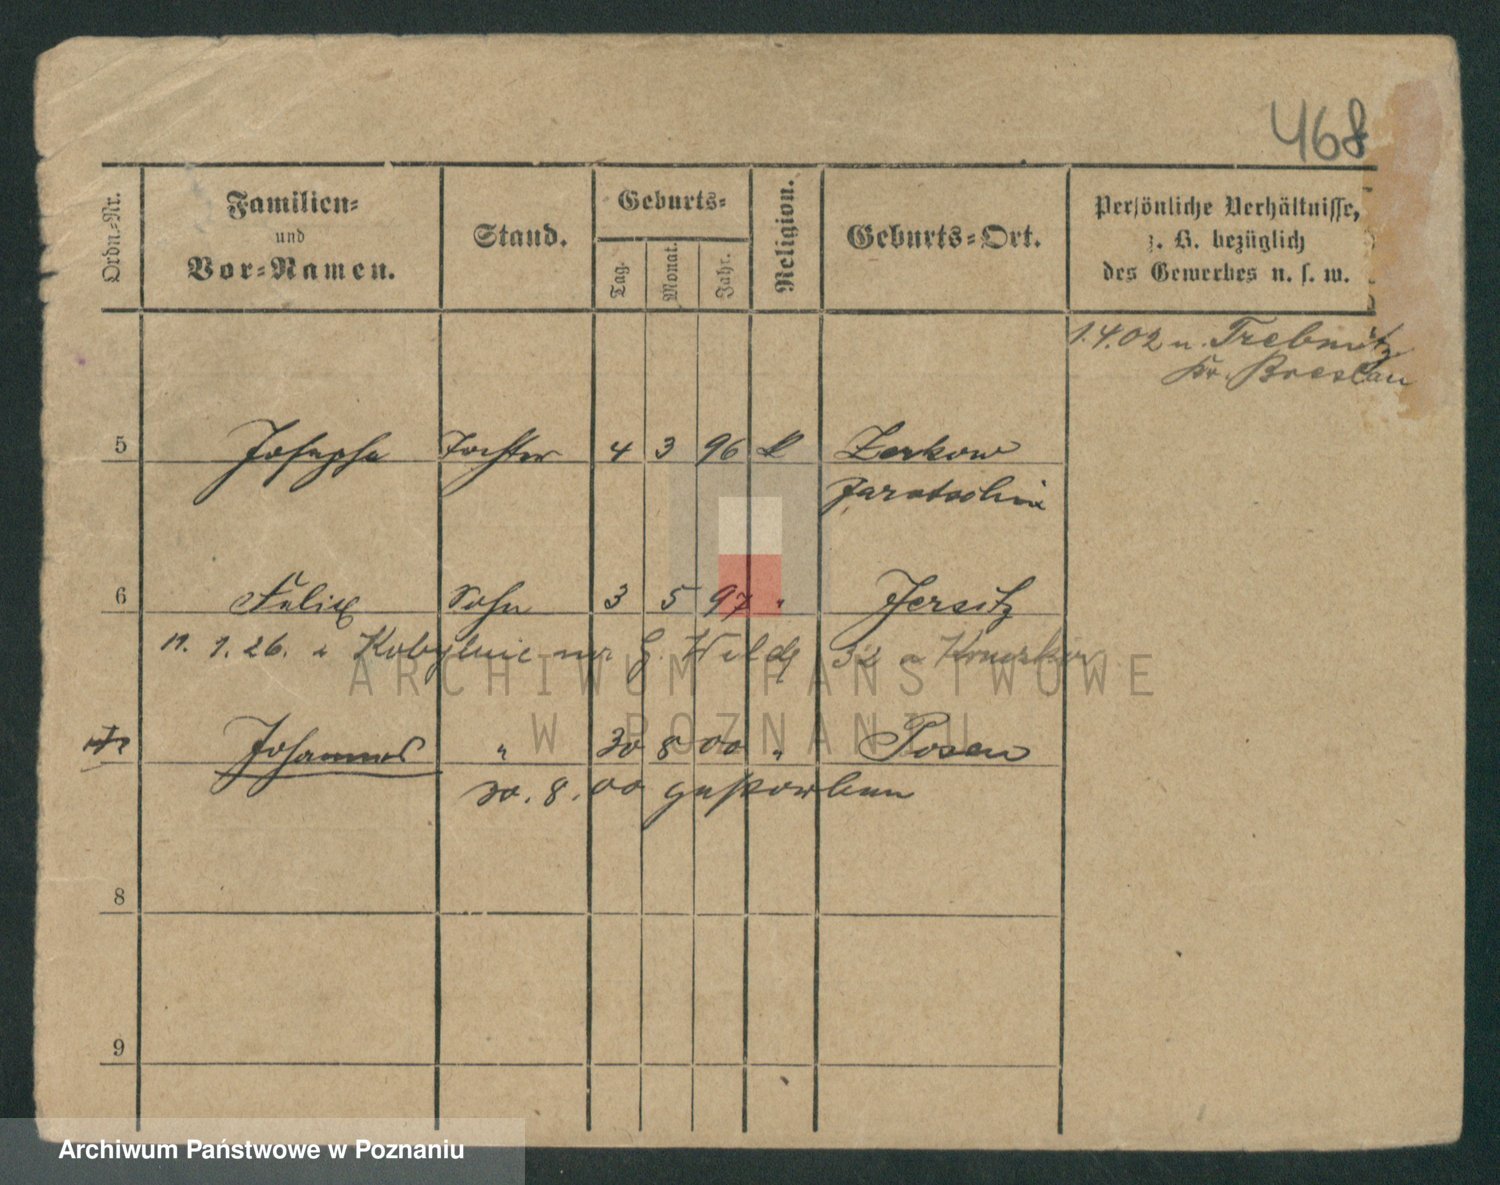 468
Ordn.-Nr.
Familien-
und
Vor-Namen.
Stand.
Geburts-
Tag.
Monat.
Jahr.
Religion.
Geburts-Ort.
Persönliche Verhältnisse,
z. B. bezüglich
des Gewerbes u. s. w.
1.4.02 n. Trebnitz
Kr. Breslau
5 Josepha Tochter 4 3 96 k Zerkow
Jarotschin
6 Felix Sohn 3 5 97 " Jersitz
11. 1. 26. z Kobylnic 32
Johannes " 30 8 00 " Posen
30. 8. 00 gestorben
8
9
ARCHIWUM PAŃSTWOWE
W POZNANIU
Archiwum Państwowe w Poznaniu